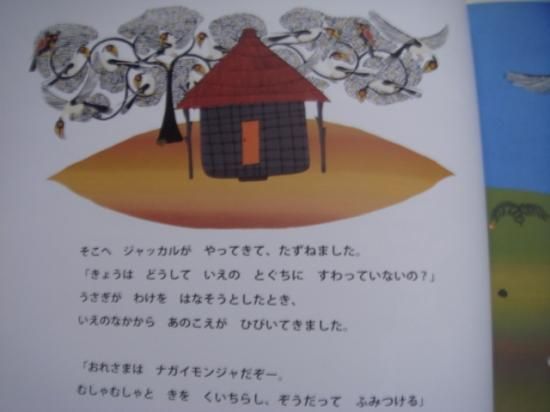 そこへ ジャッカルが やってきて、たずねました。
「きょうは どうして いえの とぐちに すわっていないの？」
うさぎが わけを はなそうとしたとき、
いえのなかから あのこえが ひびいてきました。
「おれさまは ナガイモンジャだぞー。
むしゃむしゃと きを くいちらし、ぞうだって ふみつける」